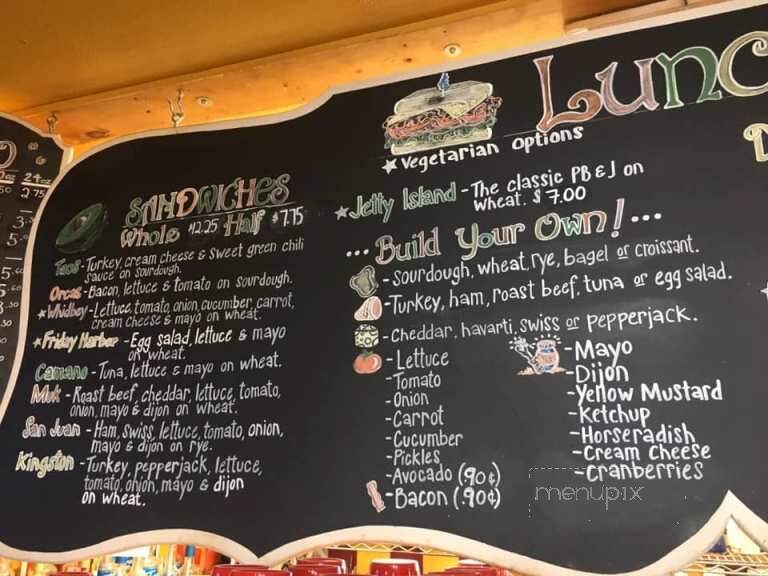 24oz
2.75
Lunc
SANDWICHES
Whole $12.25 Half $7.75
Taos - Turkey, cream cheese & sweet green chili
sauce on sourdough.
Orcas - Bacon, lettuce & tomato on sourdough.
★Whidbey - Lettuce, tomato, onion, cucumber, carrot,
cream cheese & mayo on wheat.
★Friday Harbor - Egg salad, lettuce & mayo
on wheat.
Camano - Tuna, lettuce & mayo on wheat.
Muk - Roast beef, cheddar, lettuce, tomato,
onion, mayo & dijon on wheat.
San Juan - Ham, swiss, lettuce, tomato, onion,
mayo & dijon on rye.
Kingston - Turkey, pepperjack, lettuce,
tomato, onion, mayo & dijon
on wheat.
★Vegetarian Options
★Jetty Island - The classic PB & J on
wheat. $7.00
... Build Your Own! ...
- Sourdough, wheat, rye, bagel or croissant.
- Turkey, ham, roast beef, tuna or egg salad.
- Cheddar, havarti, swiss or pepperjack.
- Lettuce
- Tomato
- Onion
- Carrot
- Cucumber
- Pickles
- Avocado (.90¢)
- Bacon (.90¢)
- Mayo
- Dijon
- Yellow Mustard
- Ketchup
- Horseradish
- Cream Cheese
- Cranberries
menupix